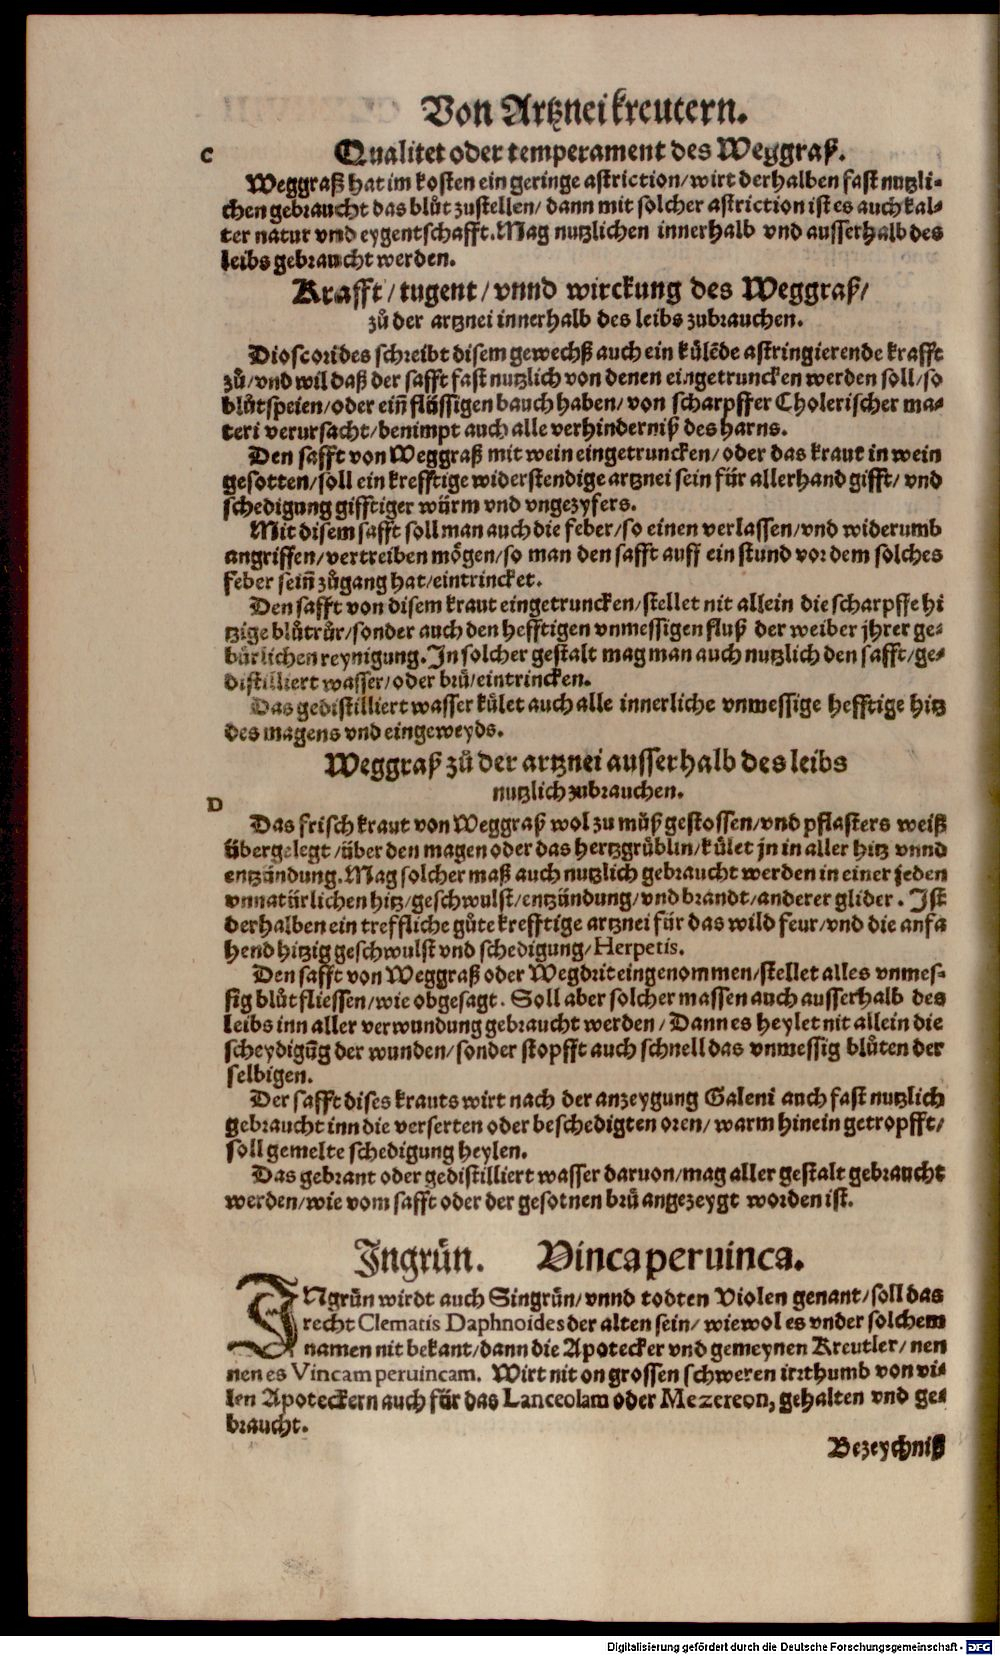 Von Artzneikreutern.
C
Qualitet oder temperament des Weggraß.
Weggraß hat im kosten ein geringe astriction/wirt derhalben fast nutzli-
chen gebraucht das blůt zustellen/ dann mit solcher astriction ist es auch kal-
ter natur vnd eygentschafft. Mag nutzlichen innerhalb vnd ausserhalb des
leibs gebraucht werden.
Krafft/ tugent/ vnnd wirckung des Weggraß/
zů der artznei innerhalb des leibs zubrauchen.
Dioscorides schreibt disem gewechß auch ein külēde astringierende krafft
zů/vnd wil daß der safft fast nutzlich von denen eingetruncken werden soll/so
blůtspeien/oder eiñ flüssigen bauch haben/ von scharpffer Cholerischer ma-
teri verursacht/benimpt auch alle verhinderniß des harns.
Den safft von Weggraß mit wein eingetruncken/oder das kraut in wein
gesotten/soll ein krefftige widerstendige artznei sein für allerhand gifft/ vnd
schedigung gifftiger würm vnd vngezyfers.
Mit disem safft soll man auch die feber/so einen verlassen/vnd widerumb
angriffen/vertreiben mögen/so man den safft auff ein stund vor dem solches
feber seiñ zůgang hat/eintrincket.
Den safft von disem kraut eingetruncken/stellet nit allein die scharpffe hi
tzige blůtrůr/sonder auch den hefftigen vnmessigen fluß der weiber jhrer ge-
bürlichen reynigung. In solcher gestalt mag man auch nutzlich den safft/ge-
distilliert wasser/oder brü/eintrincken.
Das gedistilliert wasser kület auch alle innerliche vnmessige hefftige hitz
des magens vnd eingeweyds.
Weggraß zů der artznei ausserhalb des leibs
nutzlich zubrauchen.
D
Das frisch kraut von Weggraß wol zu můß gestossen/vnd pflasters weiß
übergelegt/über den magen oder das hertzgrüblin/kület jn in aller hitz vnnd
entzündung. Mag solcher maß auch nutzlich gebraucht werden in einer jeden
vnnatürlichen hitz/geschwulst/entzündung/vnd brandt/anderer glider. Ist
derhalben ein treffliche gůte krefftige artznei für das wild feur/vnd die anfa
hend hitzig geschwulst vnd schedigung/Herpetis.
Den safft von Weggraß oder Wegdrit eingenommen/stellet alles vnmes-
sig blůtfliessen/wie obgesagt. Soll aber solcher massen auch ausserhalb des
leibs inn aller verwundung gebraucht werden/ Dann es heylet nit allein die
scheydigūg der wunden/sonder stopfft auch schnell das vnmessig blůten der
selbigen.
Der safft dises krauts wirt nach der anzeygung Galeni auch fast nutzlich
gebraucht inn die verserten oder beschedigten oren/warm hinein getropfft/
soll gemelte schedigung heylen.
Das gebrant oder gedistilliert wasser daruon/mag aller gestalt gebraucht
werden/wie vom safft oder der gesotnen brü angezeygt worden ist.
Ingrün. Vinca peruinca.
INgrün wirdt auch Singrün/vnnd todten Violen genant/soll das
recht Clematis Daphnoides der alten sein/ wiewol es vnder solchem
namen nit bekant/dann die Apotecker vnd gemeynen Kreutler/nen
nen es Vincam peruincam. Wirt nit on grossen schweren irrthumb von vi-
len Apoteckern auch für das Lanceolam oder Mezereon, gehalten vnd ge-
braucht.
Bezeychniß
Digitalisierung gefördert durch die Deutsche Forschungsgemeinschaft - DFG